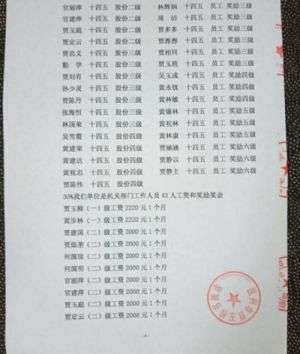 官丽萍 十四五 股份二级 十四五 员工 奖励三级
官建萍 十四五 股份二级 十四五 员工 奖励三级
贾玉超 十四五 股份二级 贾多多 十四五 员工 奖励三级
贾定云 十四五 股份三级 十四五 员工 奖励三级
贾忠义 十四五 股份三级 贾相同 十四五 员工 奖励三级
十四五 股份三级 贾玉琪 十四五 员工 奖励三级
十四五 股份三级 吴玉成 十四五 员工 奖励四级
孙少灵 十四五 股份三级 黄永镇 十四五 员工 奖励四级
贾陈丹 十四五 股份三级 黄林敏 十四五 员工 奖励四级
张海恒 十四五 股份三级 黄锡章 十四五 员工 奖励四级
林莲荣 十四五 股份三级 黄长林 十四五 员工 奖励五级
吴雪霞 十四五 股份四级 黄林康 十四五 员工 奖励五级
黄建荣 十四五 股份四级 贾丽涵 十四五 员工 奖励六级
黄建达 十四五 股份四级 贾静以 十四五 员工 奖励六级
黄秋志 十四五 股份四级 贾静主 十四五 员工 奖励六级
贾陈伟 十四五 股份四级
30%我们单位是机关部门工作人员 43 人工资和奖励奖金
贾玉柳（一）级工资 2220 元 1 个月
黄步林（一）级工资 2220 元 1 个月
贾建国（二）级工资 2000 元 1 个月
贾临茶（二）级工资 2000 元 1 个月
何国瑞（二）级工资 2000 元 1 个月
何国明（二）级工资 2000 元 1 个月
官丽萍（二）级工资 2000 元 1 个月
官建萍（二）级工资 2000 元 1 个月
贾玉超（二）级工资 2000 元 1 个月
贾定云（二）级工资 2000 元 1 个月